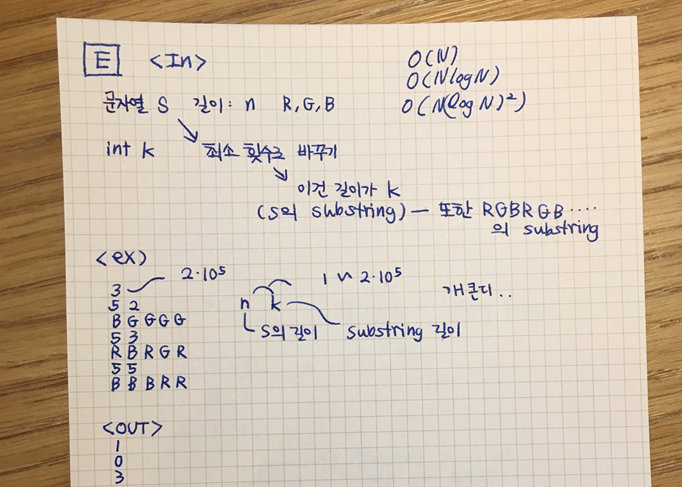 E <In>
O(N)
O(NlogN)
O(N(logN)²)
문자열 S 길이: n R, G, B
int k 최소 횟수로 바꾸기
이건 길이가 k
(S의 substring) — 또한 RGBRGB.....
의 substring
<ex>
3 2·10⁵
5 2
B G G G G
5 3
R B R G R
5 5
B B B R R
n k 1 ~ 2·10⁵
S의 길이 substring 길이
개 큰디..
<OUT>
1
0
3